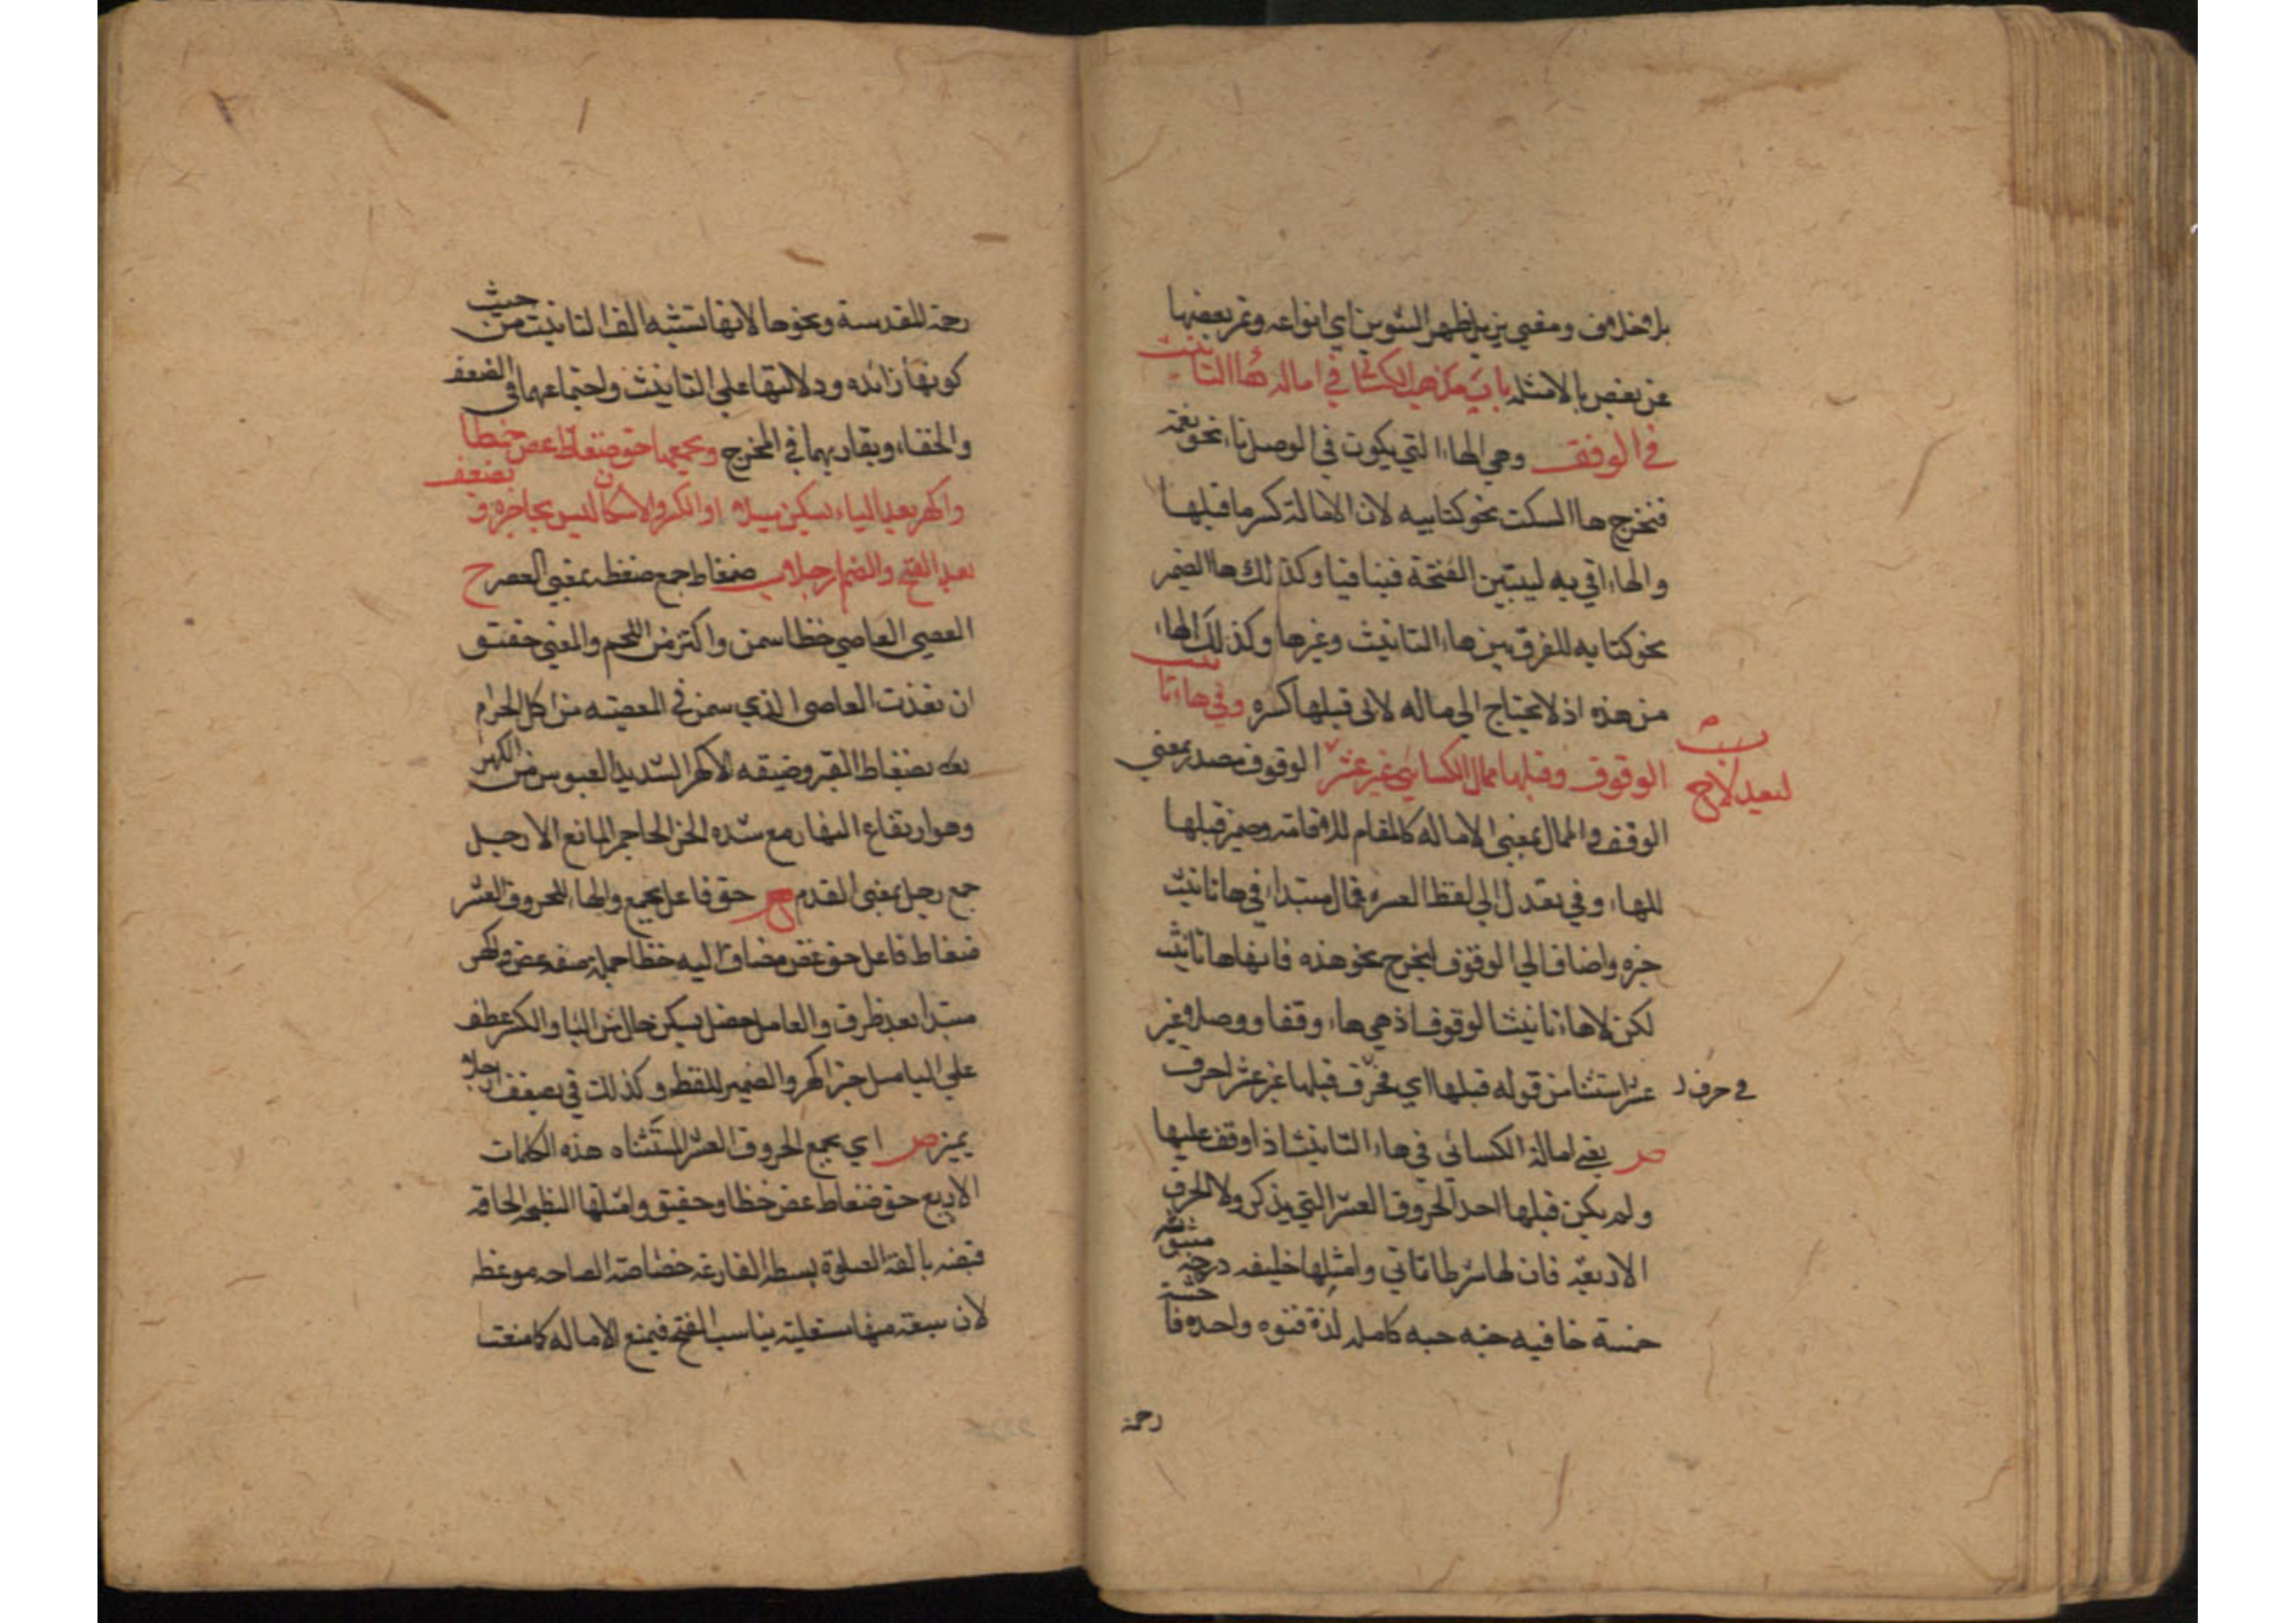 بلا خلاف ومعنى تزيل ظهر التنوين اي انواعه وتميز بعضها
عن بعض بالامثله باب مذهب الكسائي في امالة هاء التانيث
في الوقف وهي الهاء التي يكون في الوصل تاء نحو نعمة
فتخرج هاء السكت نحو كتابيه لان الامالة كسر ما قبلها
والهاء اتي به ليتبين الفتحة فيتنافيا وكذلك هاء الضمير
نحو كتابه للفرق بين هاء التانيث وغيرها وكذلك الهاء
من هذه اذ لا يحتاج الى اماله لان قبلها كسره وفي هاء تانيث
الوقوف وقبلها ممال الكسائي غير عشر الوقوف مصدر بمعني
ليعدلا ح
الوقف والممال بمعنى الاماله كالمقام للاقامة وضمير قبلها
للهاء وفي بعد لا الي لفظ العشر فممال مبتدا في هاء تانيث
خبره واضاف الى الوقوف ليخرج نحو هذه فانها هاء تانيث
لكن لا هاء تانيث الوقوف اذ هي هاء وقفا ووصلا وغير
عشر استثنا من قوله قبلها اي في حرف قبلها غير عشر احرف
في حرف
ص يعني امالة الكسائي في هاء التانيث اذا وقف عليها
ولم يكن قبلها احد الحروف العشر التي يذكر ولا الحرف
الاربعة فان لها شرطا تاتي وامثلها خليفه درجة مبثوثة
خمسة خافيه جنه حبه كامله لذة قسوه واحده
رحمة
رحمة المقدسة ونحوها لانها تشبه الف التانيث من حيث
كونها زائده ودلالتها على التانيث واجتماعهما في الضعف
والخفاء وتقاربهما في المخرج ويجمعها حق ضغاط عص خظا
واكهر بعد الياء يسكن ميلا او الكسر والاسكان ليس بحاجز ويضعف
بعد الفتح والضم ارجلا ب ضغاط جمع ضغطه بمعني العصر ح
العصي العاصي خظا سمن واكتنز من اللحم والمعني حقيق
ان تعذب العاصي الذي سمن في المعصيه من اكل الحرام
بضغاط القبر وضيقه الاكهر الشديد العبوس من الكهر
وهو ارتفاع النهار مع شده الحر الحاجز المانع الارجل
جمع رجل بمعنى القدم ح حق فاعل يجمع والهاء للحروف العشر
ضغاط فاعل حق عص مضاف اليه خظا جملة صفة عص واكهر
مبتدا بعد ظرف والعامل حصل يسكن حال من اليا والكسر عطف
علي اليا ميل خبر اكهر والضمير للفظ وكذلك في يضعف ارجلا
تميز ص اي يجمع الحروف العشر المستثناه هذه الكلمات
الاربع حق ضغاط عص خظا وحقيق وامثلها النطيحة الحاقه
قبضه بالغة الصلوة بسطه القارعة خصاصة الصاخه موعظه
لان سبعة منها مستعلية يناسب الفتح فيمنع الاماله كما منعت